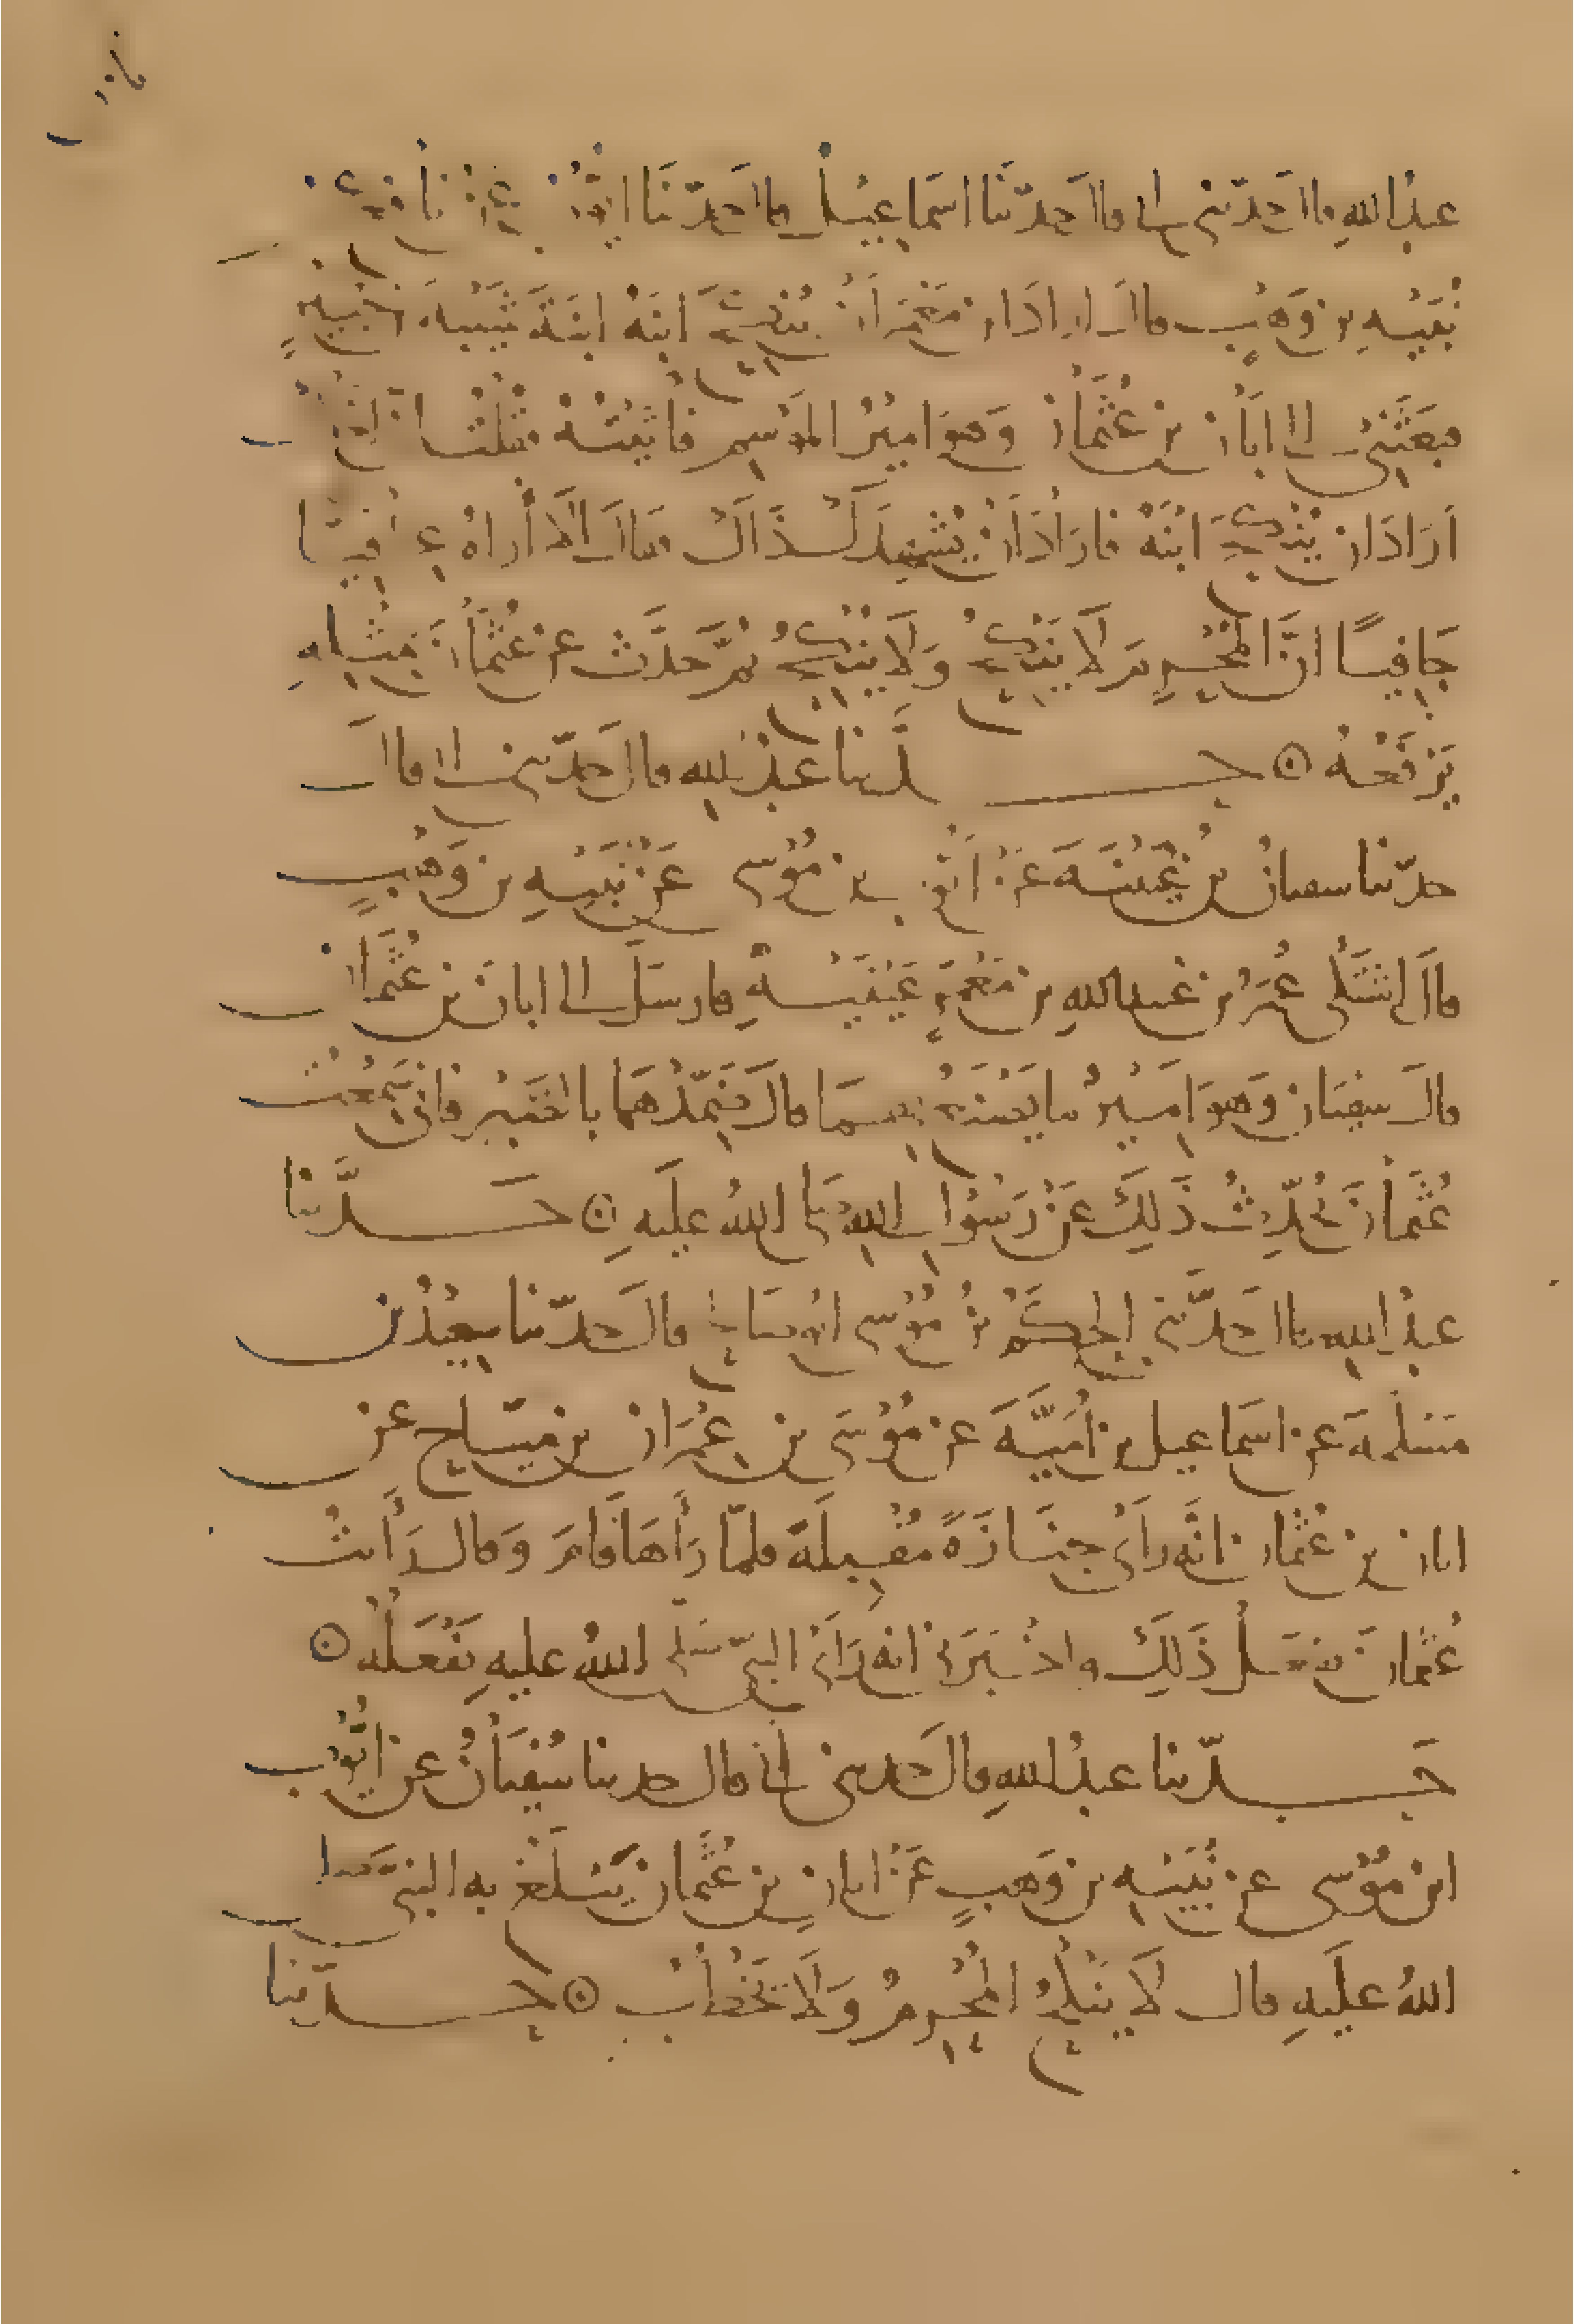 عبدُ اللهِ قال حَدّثني ابي قال حَدّثنَا اسمَاعِيل قال حَدّثنَا ايّوْبُ عَنْ نافع عن
نُبَيْهِ بن وَهْبٍ قالَ ارادَ ابن مَعْمَرٍ اَنْ يُنكِحَ ابنَهُ ابنَةَ شَيْبَةَ بن جُبَيْرٍ
فبعَثَنِيْ الى ابَان بن عُثمَان وَهوَ امِيْرُ المَوْسِمِ فاَتَيْتُهُ فقُلْتُ انّ اخَاكَ
اَرَادَ ان يُنْكِحَ ابْنَهُ فارَادَ اَنْ يُشْهِدَكَ ذَاكَ فقالَ الَا اُرَاهُ عِرَاقِيًّا
جَافِيًا انَّ المُحْرِمَ لَا يَنْكِحُ وَلَا يُنْكِحُ ثُمَّ حدَّثَ عن عُثمَانَ بِمِثْلِهِ
يَرْفَعُهُ ۞ حَدَّثنا عبْدُ اللهِ قال حَدّثني ابي قالَ
حدّثنا سفيانُ بن عُيَيْنَةَ عَنْ اَيّوْبَ بن مُوْسى عَنْ نُبَيْهِ بن وَهْبٍ
قالَ اشْتَكى عُمَرُ بن عُبيداللهِ بن مَعْمَرٍ عَيْنَيْهِ فارسَلَ الى ابانَ بن عُثمَان
قالَ سفيَان وَهوَ اَمِيْرٌ ما يَصْنَعُ بِهِمَا قالَ ضَمِّدْهُمَا بالصَّبِرِ فانّي سَمِعْتُ
عُثمَانَ يُحَدِّثُ ذَلِكَ عَنْ رَسُوْلِ اللهِ صَلى اللهُ عليَهِ ۞ حَدَّثنا
عبدُ اللهِ قال حَدَّثني الحَكَمُ بنُ مُوْسى ابُو صَالِحٍ قالَ حَدّثنا سعِيْدُ بن
مَسْلَمَةَ عن اسمَاعيل بن أُمَيَّةَ عن مُوْسَى بن عِمْرَان بن مَنّاحٍ عن
ابان بن عُثْمان انّه رَاَى جِنَازَةً مُقْبِلَةً فلمّا رَأَهَا قامَ وَقال رَأَيتُ
عُثْمانَ يفْعَلُ ذَلِكَ واخْبَرَني انه رَاَى النبيّ صَلّى اللهُ عليهِ يَفْعَلُهُ ۞
حَدّثنا عبدُ اللهِ قالَ حَدثني ابي قال حدثنا سُفيَانُ عن ايُّوْب
ابن مُوْسى عن نُبَيْهِ بن وَهبٍ عَنْ ابانِ بن عُثمان يَبْلُغُ به النبيّ صلى
اللهُ عليَهِ قال لَا يَنْكِحُ المُحْرِمُ وَلَا يَخْطُبْ ۞ حَدّثنا